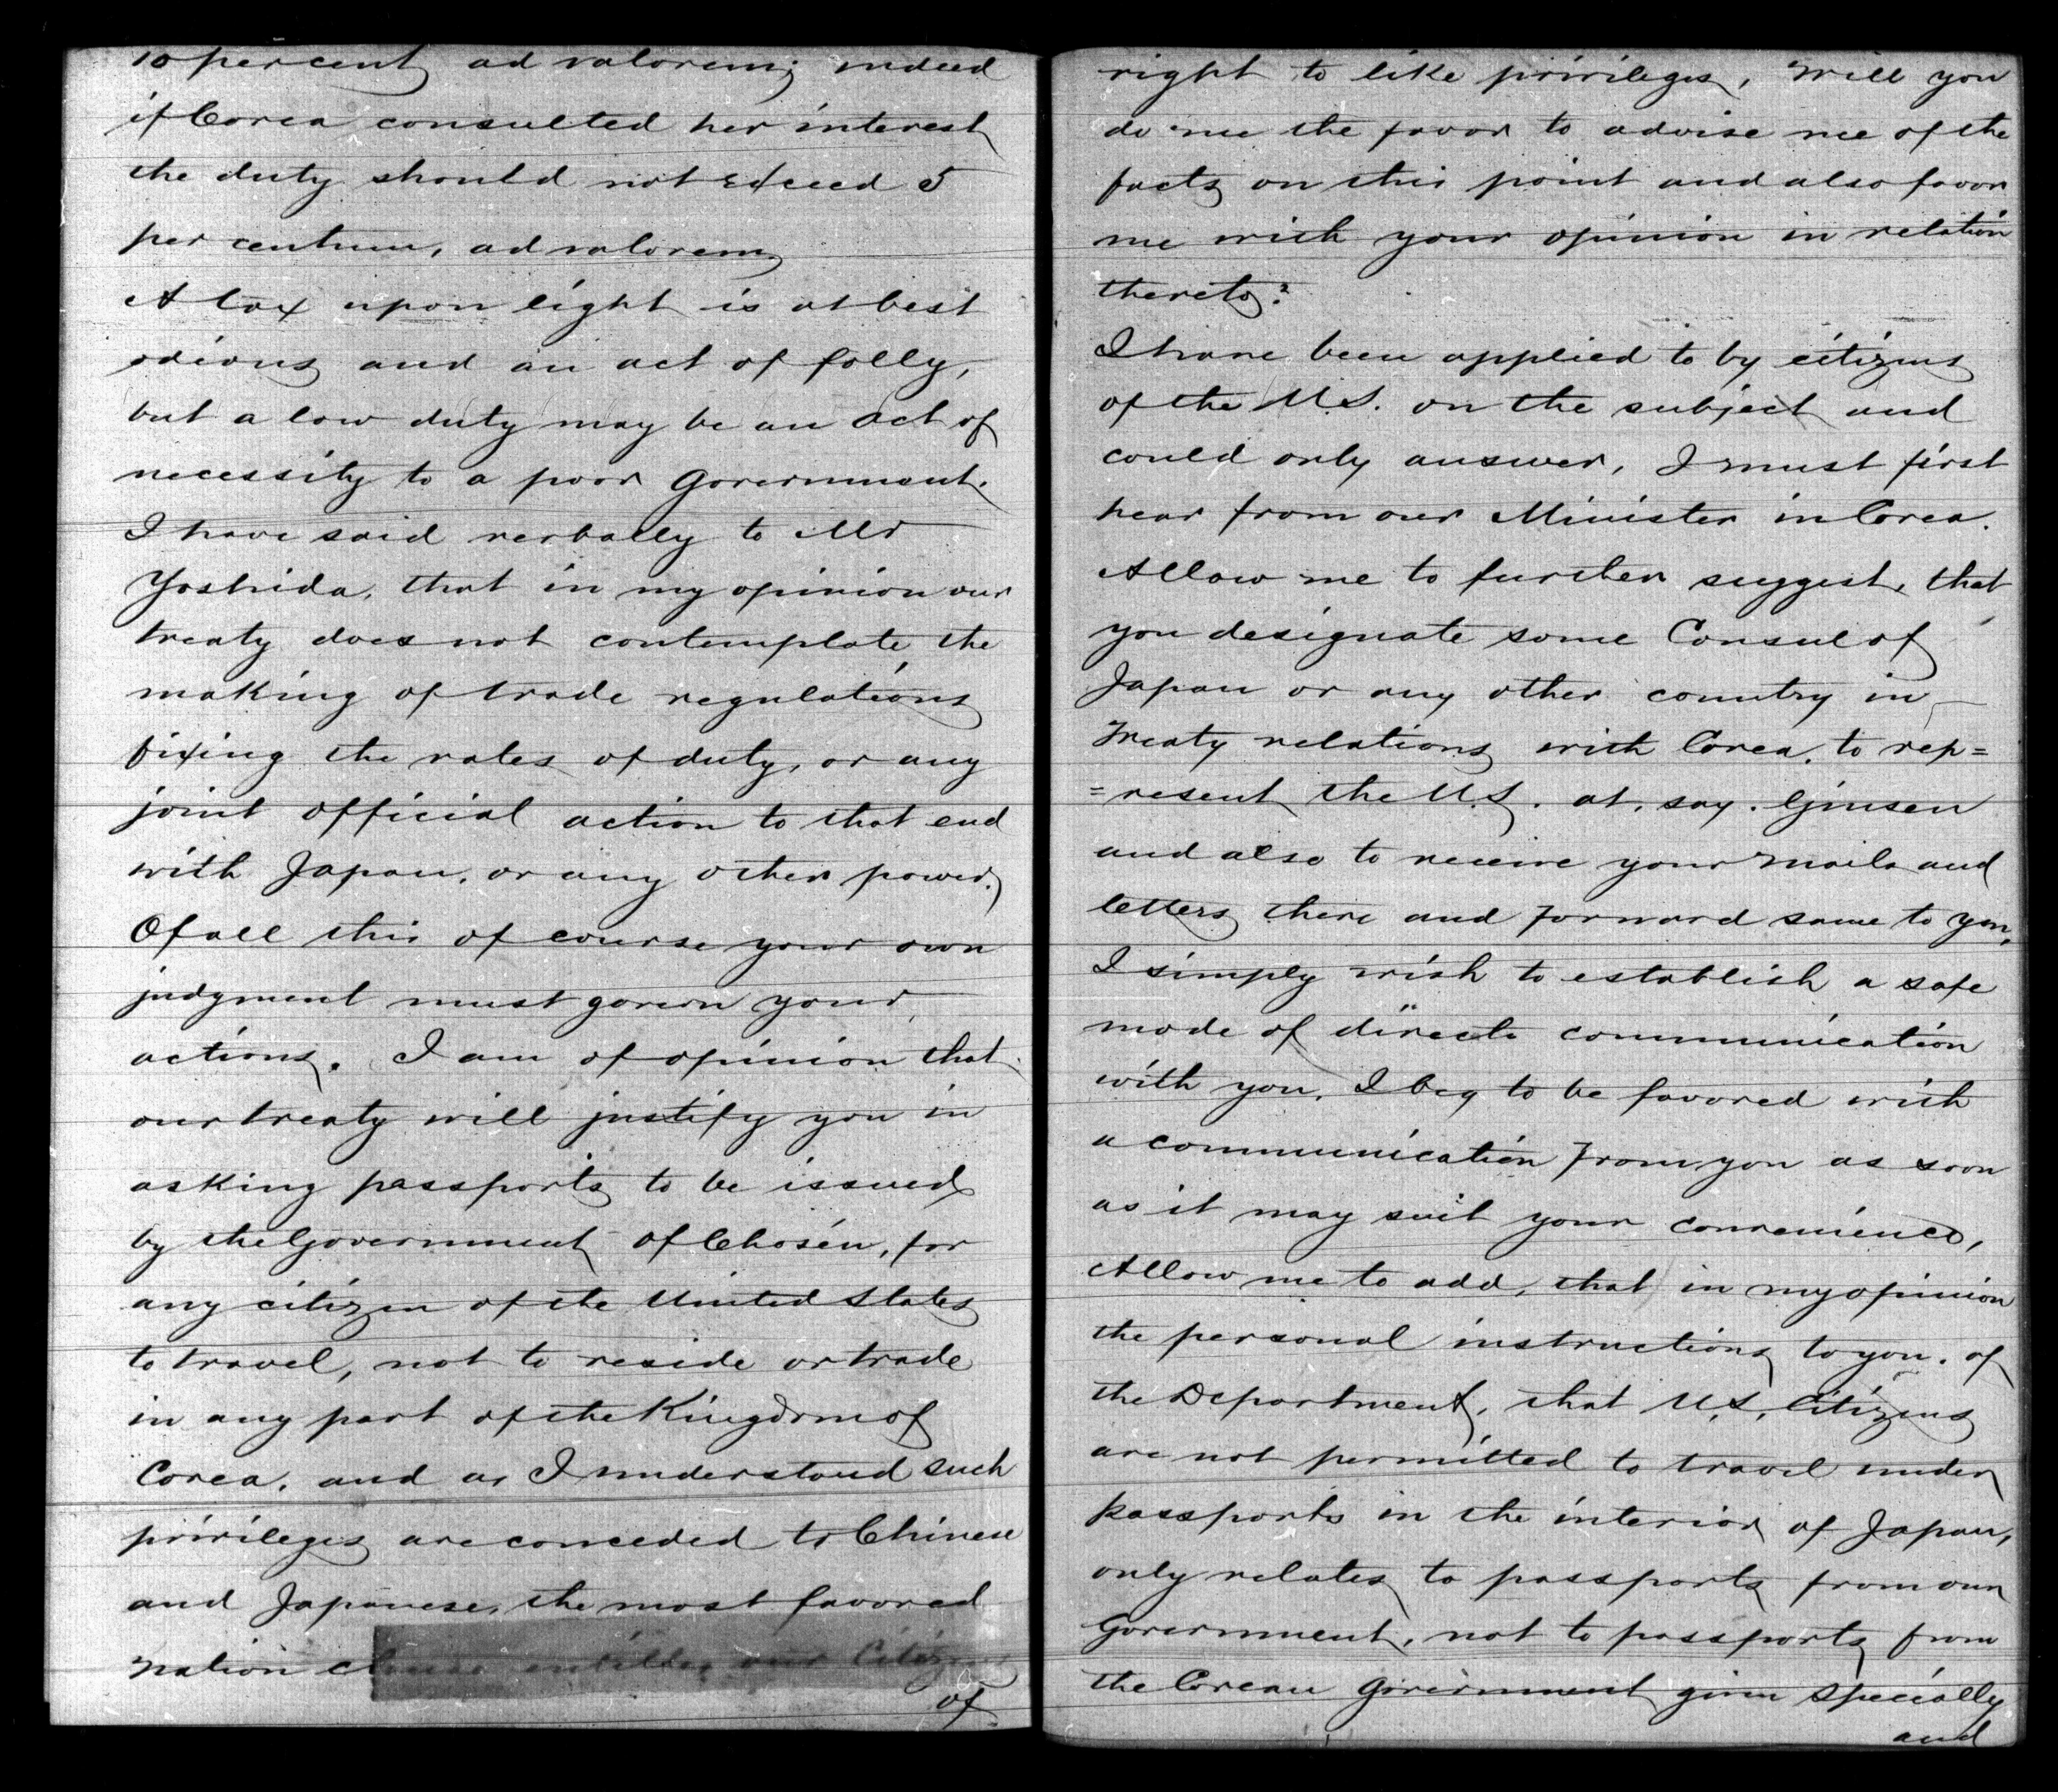 10 per cent ad valorem; indeed
if Corea consulted her interest
the duty should not exceed 5
per centum, ad valorem
A tax upon light is at best
odious and an act of folly,
but a low duty may be an act of
necessity to a poor Government.
I have said verbally to Mr
Yoshida, that in my opinion our
treaty does not contemplate the
making of trade regulations
fixing the rates of duty, or any
joint official action to that end
with Japan, or any other power.
Of all this of course your own
judgment must govern your
actions. I am of opinion that
our treaty will justify you in
asking passports to be issued
by the Government of Chosen, for
any citizen of the United States
to travel, not to reside or trade
in any part of the Kingdom of
Corea, and as I understand such
privileges are conceded to Chinese
and Japanese, the most favored
nation clause entitles our Citizens
of
right to like privileges, Will you
do me the favor to advise me of the
facts on this point and also favor
me with your opinion in relation
thereto?
I have been applied to by citizens
of the U.S. on the subject and
could only answer, I must first
hear from our Minister in Corea.
Allow me to further suggest, that
you designate some Consul of
Japan or any other country in
Treaty relations with Corea, to rep=
=resent the U.S. at, say. Ginsen
and also to receive your mails and
letters there and forward same to you,
I simply wish to establish a safe
mode of direct communication
with you, I beg to be favored with
a communication from you as soon
as it may suit your convenience,
Allow me to add, that in my opinion
the personal instructions to you, of
the Department, that U.S. Citizens
are not permitted to travel under
passports in the interior of Japan,
only relates to passports from our
Government, not to passports from
the Corean Government given specially
and